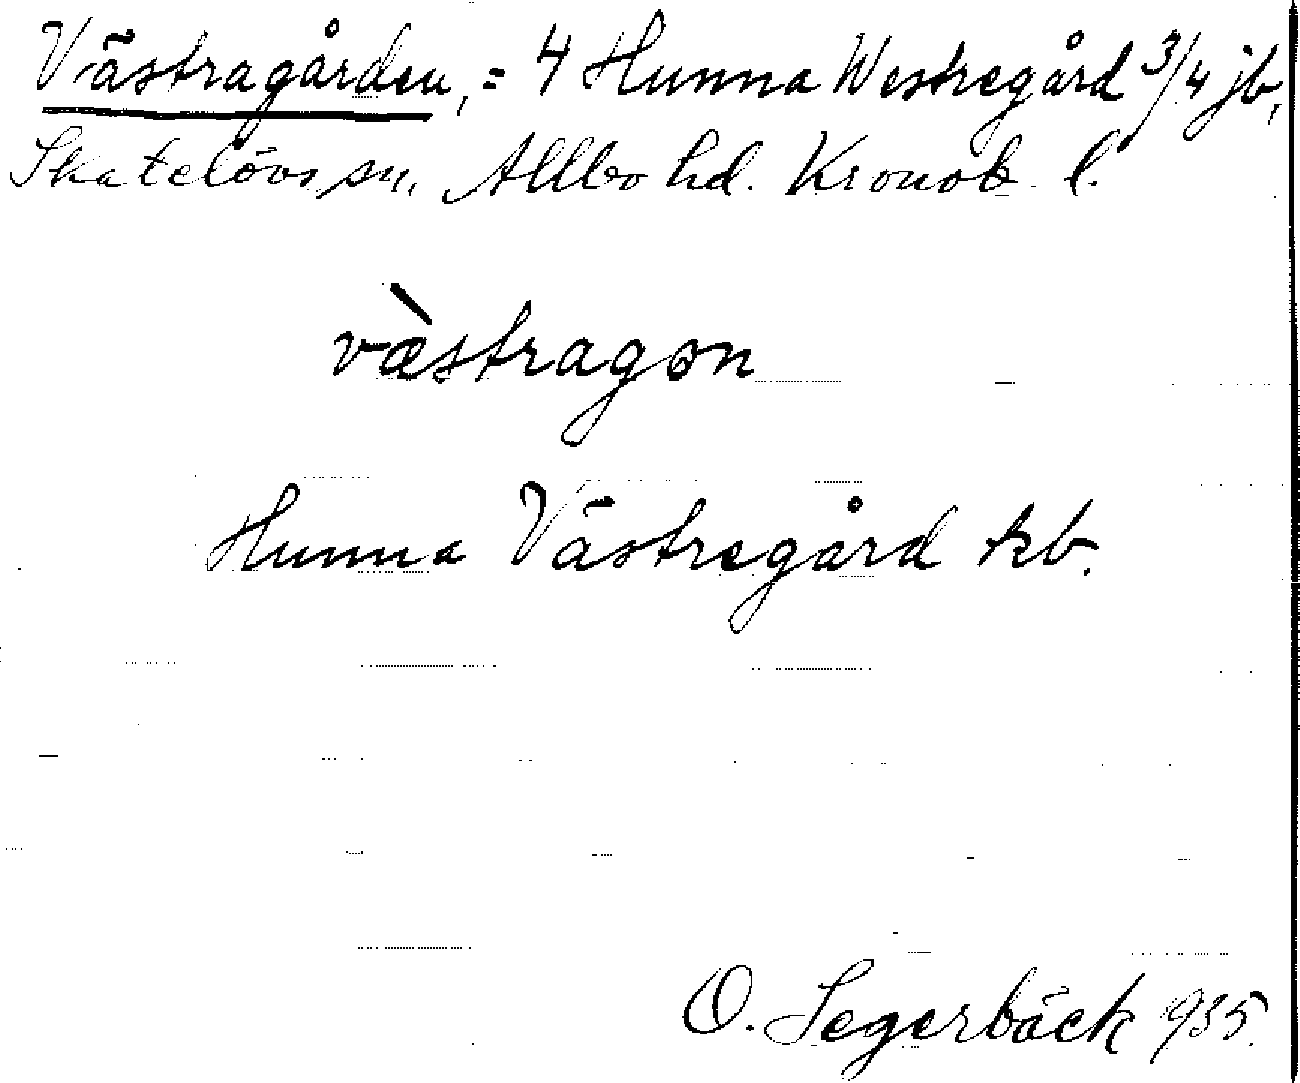 Västragården, = 4 Hunna Westregård 3/4 jb,
Skatelövs sn. Allbo hd. Kronob. l.
væ̀stragɷn
Hunna Västregård kb.
O. Segerbäck 935.